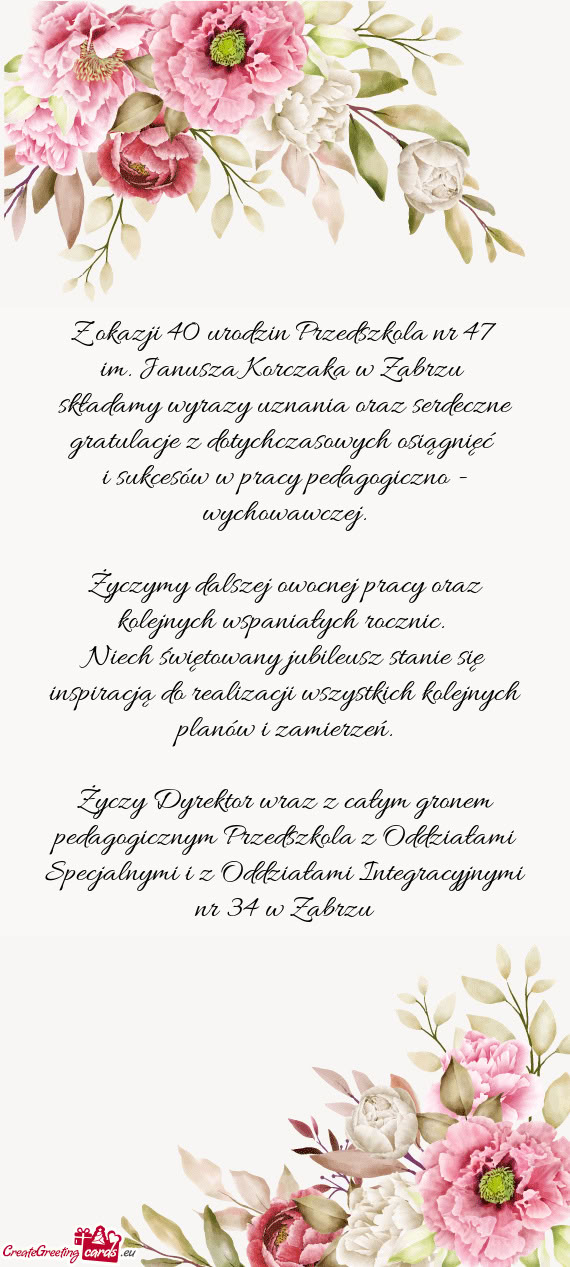 Z okazji 40 urodzin Przedszkola nr 47
im. Janusza Korczaka w Zabrzu
składamy wyrazy uznania oraz serdeczne
gratulacje z dotychczasowych osiągnięć
i sukcesów w pracy pedagogiczno -
wychowawczej.
Życzymy dalszej owocnej pracy oraz
kolejnych wspaniałych rocznic.
Niech świętowany jubileusz stanie się
inspiracją do realizacji wszystkich kolejnych
planów i zamierzeń.
Życzy Dyrektor wraz z całym gronem
pedagogicznym Przedszkola z Oddziałami
Specjalnymi i z Oddziałami Integracyjnymi
nr 34 w Zabrzu
CreateGreeting cards .eu